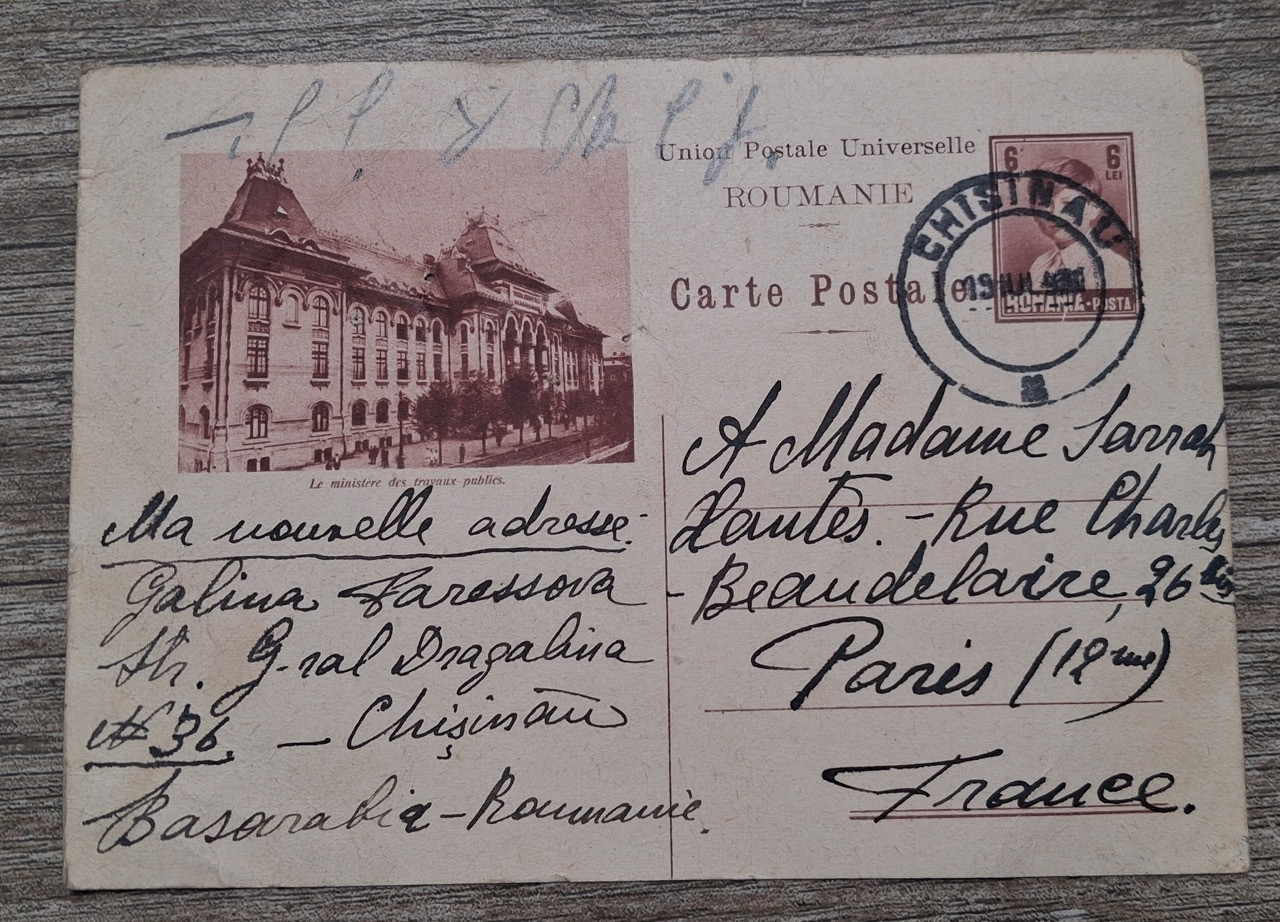 Union Postale Universelle
ROUMANIE
Carte Postale
6 6
LEI
ROMANIA-POSTA
CHISINAU
19
Le ministère des travaux publics.
Ma nouvelle adresse:
Galina
Str. G-ral Dragalina
N 36. – Chișinău
Basarabia – Roumanie.
A Madame Sarrah
– Rue Charles
– Beaudelaire, 26 bis
Paris (12me)
France.